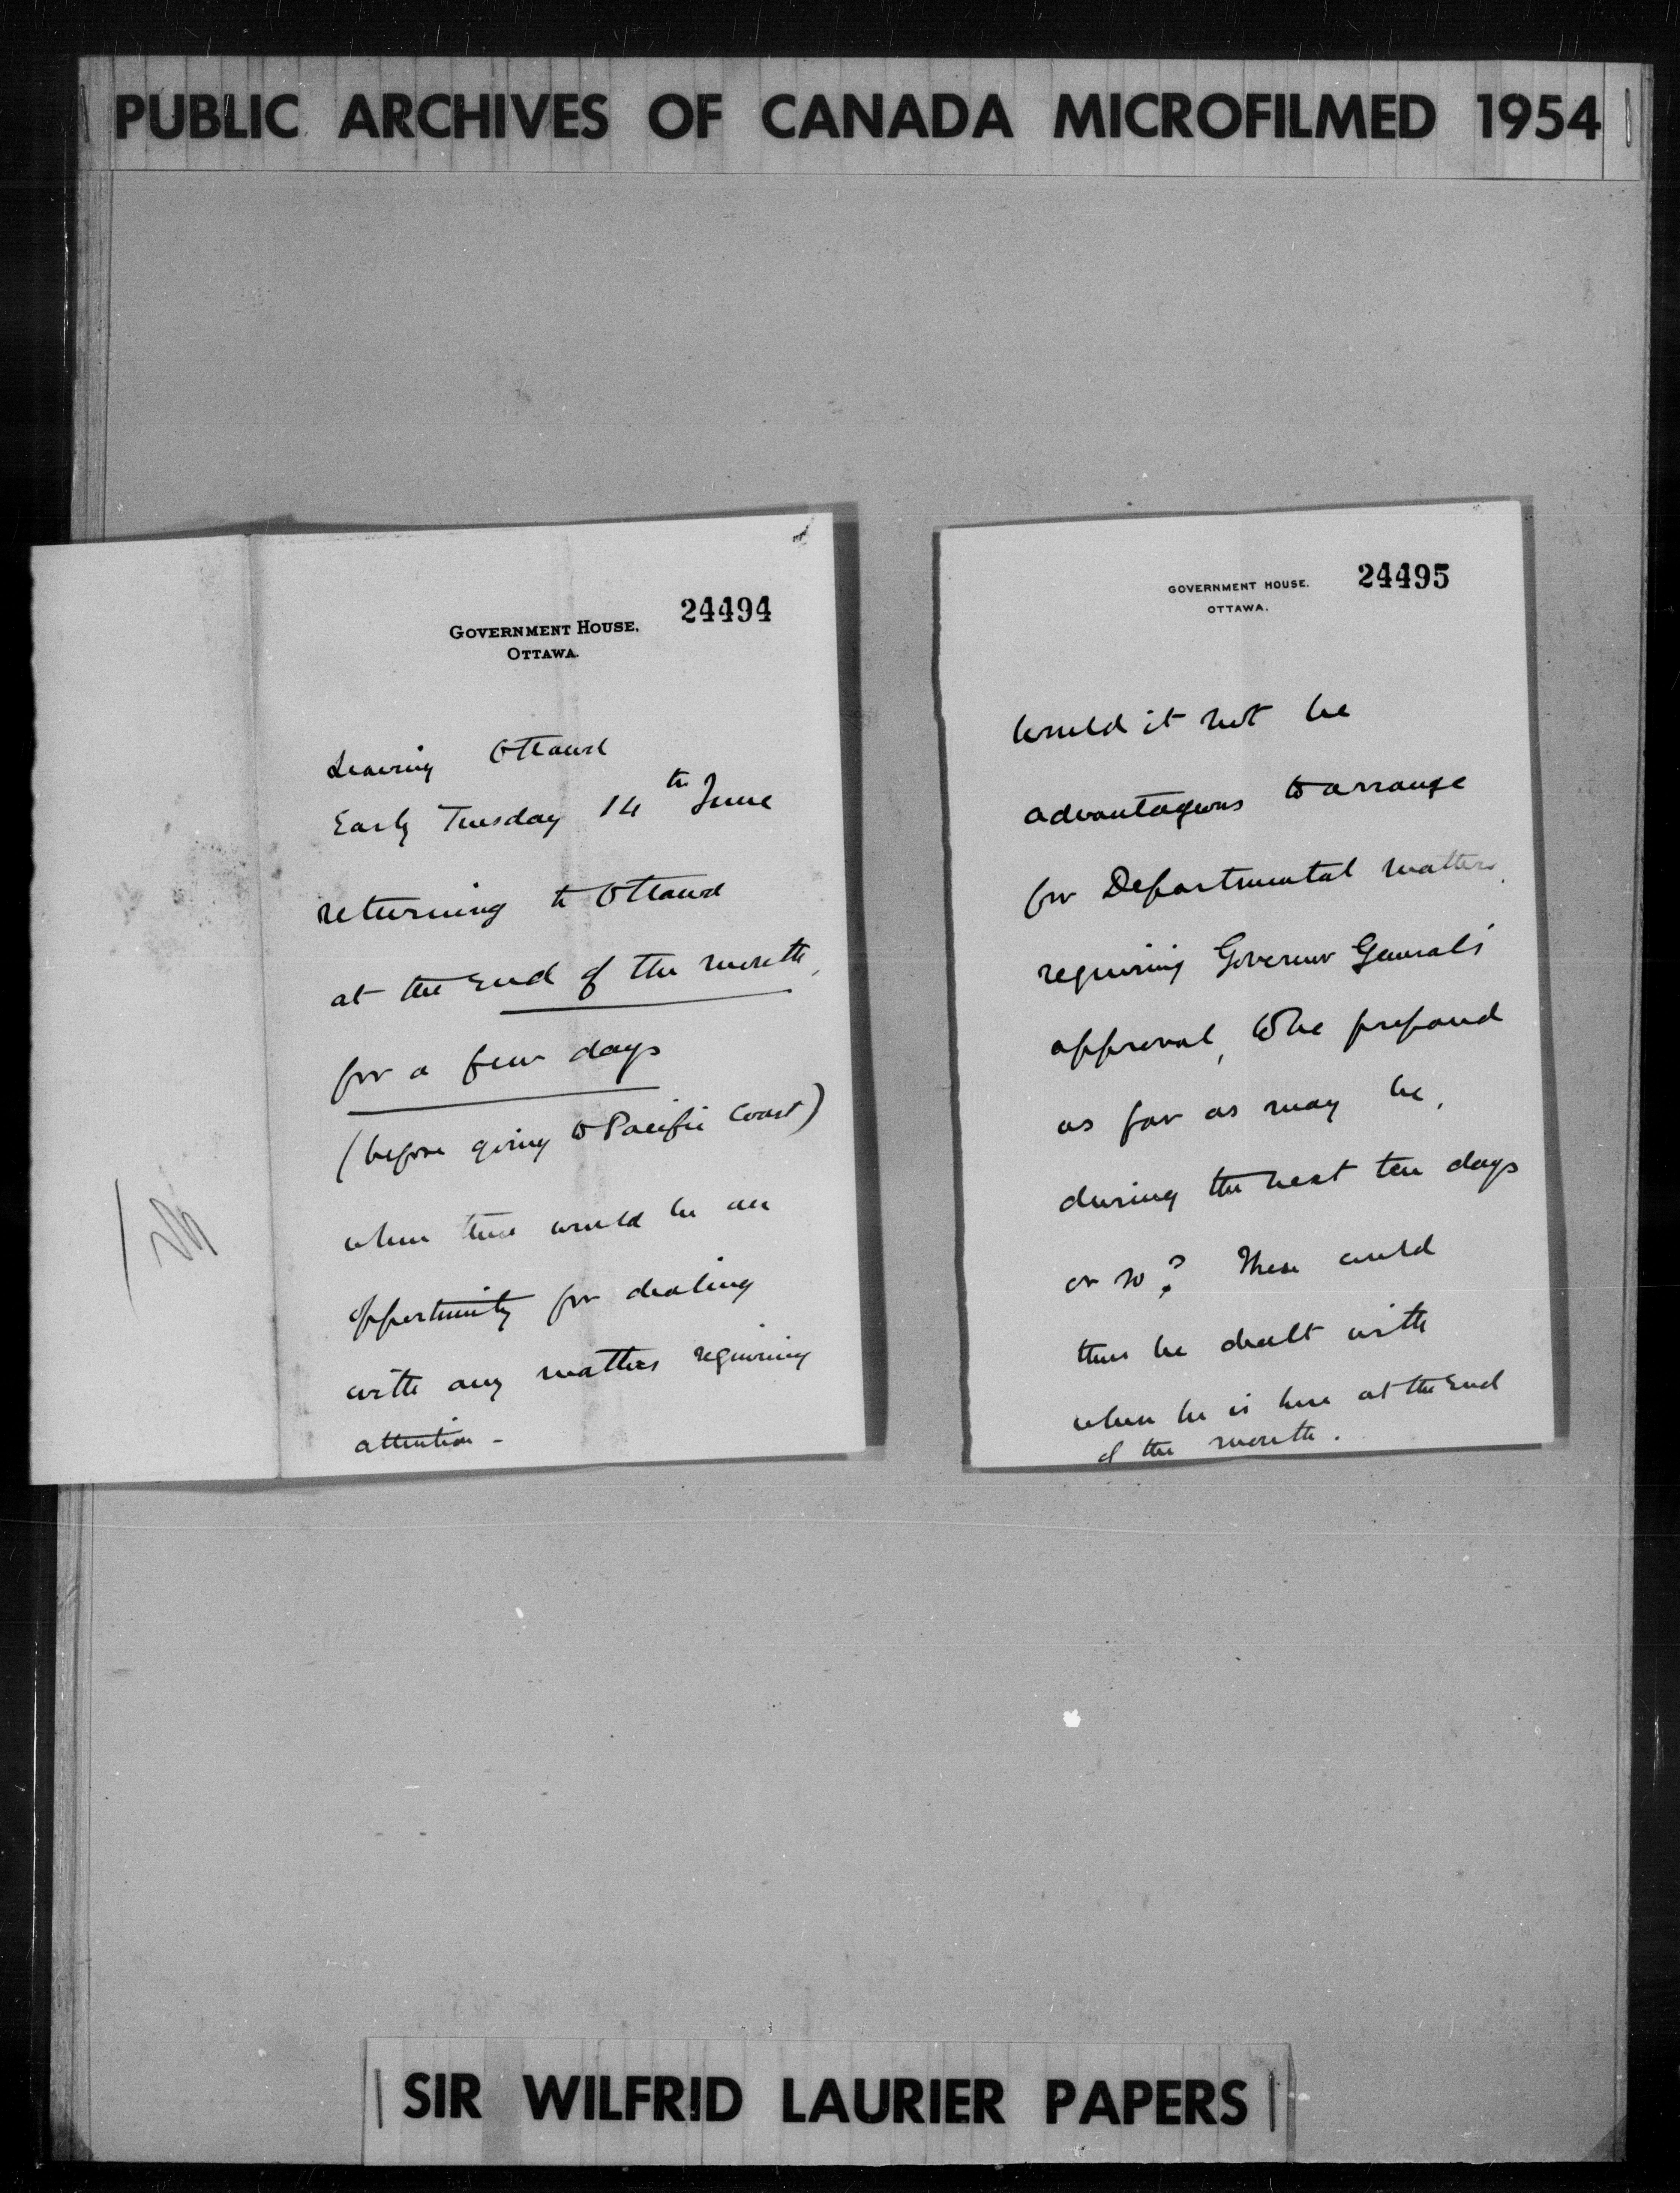 PUBLIC ARCHIVES OF CANADA MICROFILMED 1954
24494
GOVERNMENT HOUSE,
OTTAWA.
Leaving Ottawa
Early Tuesday 14th June
returning to Ottawa
at the End of the month,
for a few days
(before going to Pacific Coast)
when there would be an
opportunity for dealing
with any matters requiring
attention -
24495
GOVERNMENT HOUSE.
OTTAWA.
Would it not be
advantageous to arrange
for Departmental matters,
requiring Governor General's
approval, to be prepared
as far as may be,
during the next ten days
or so? These could
thus be dealt with
when he is here at the End
of the month.
SIR WILFRID LAURIER PAPERS